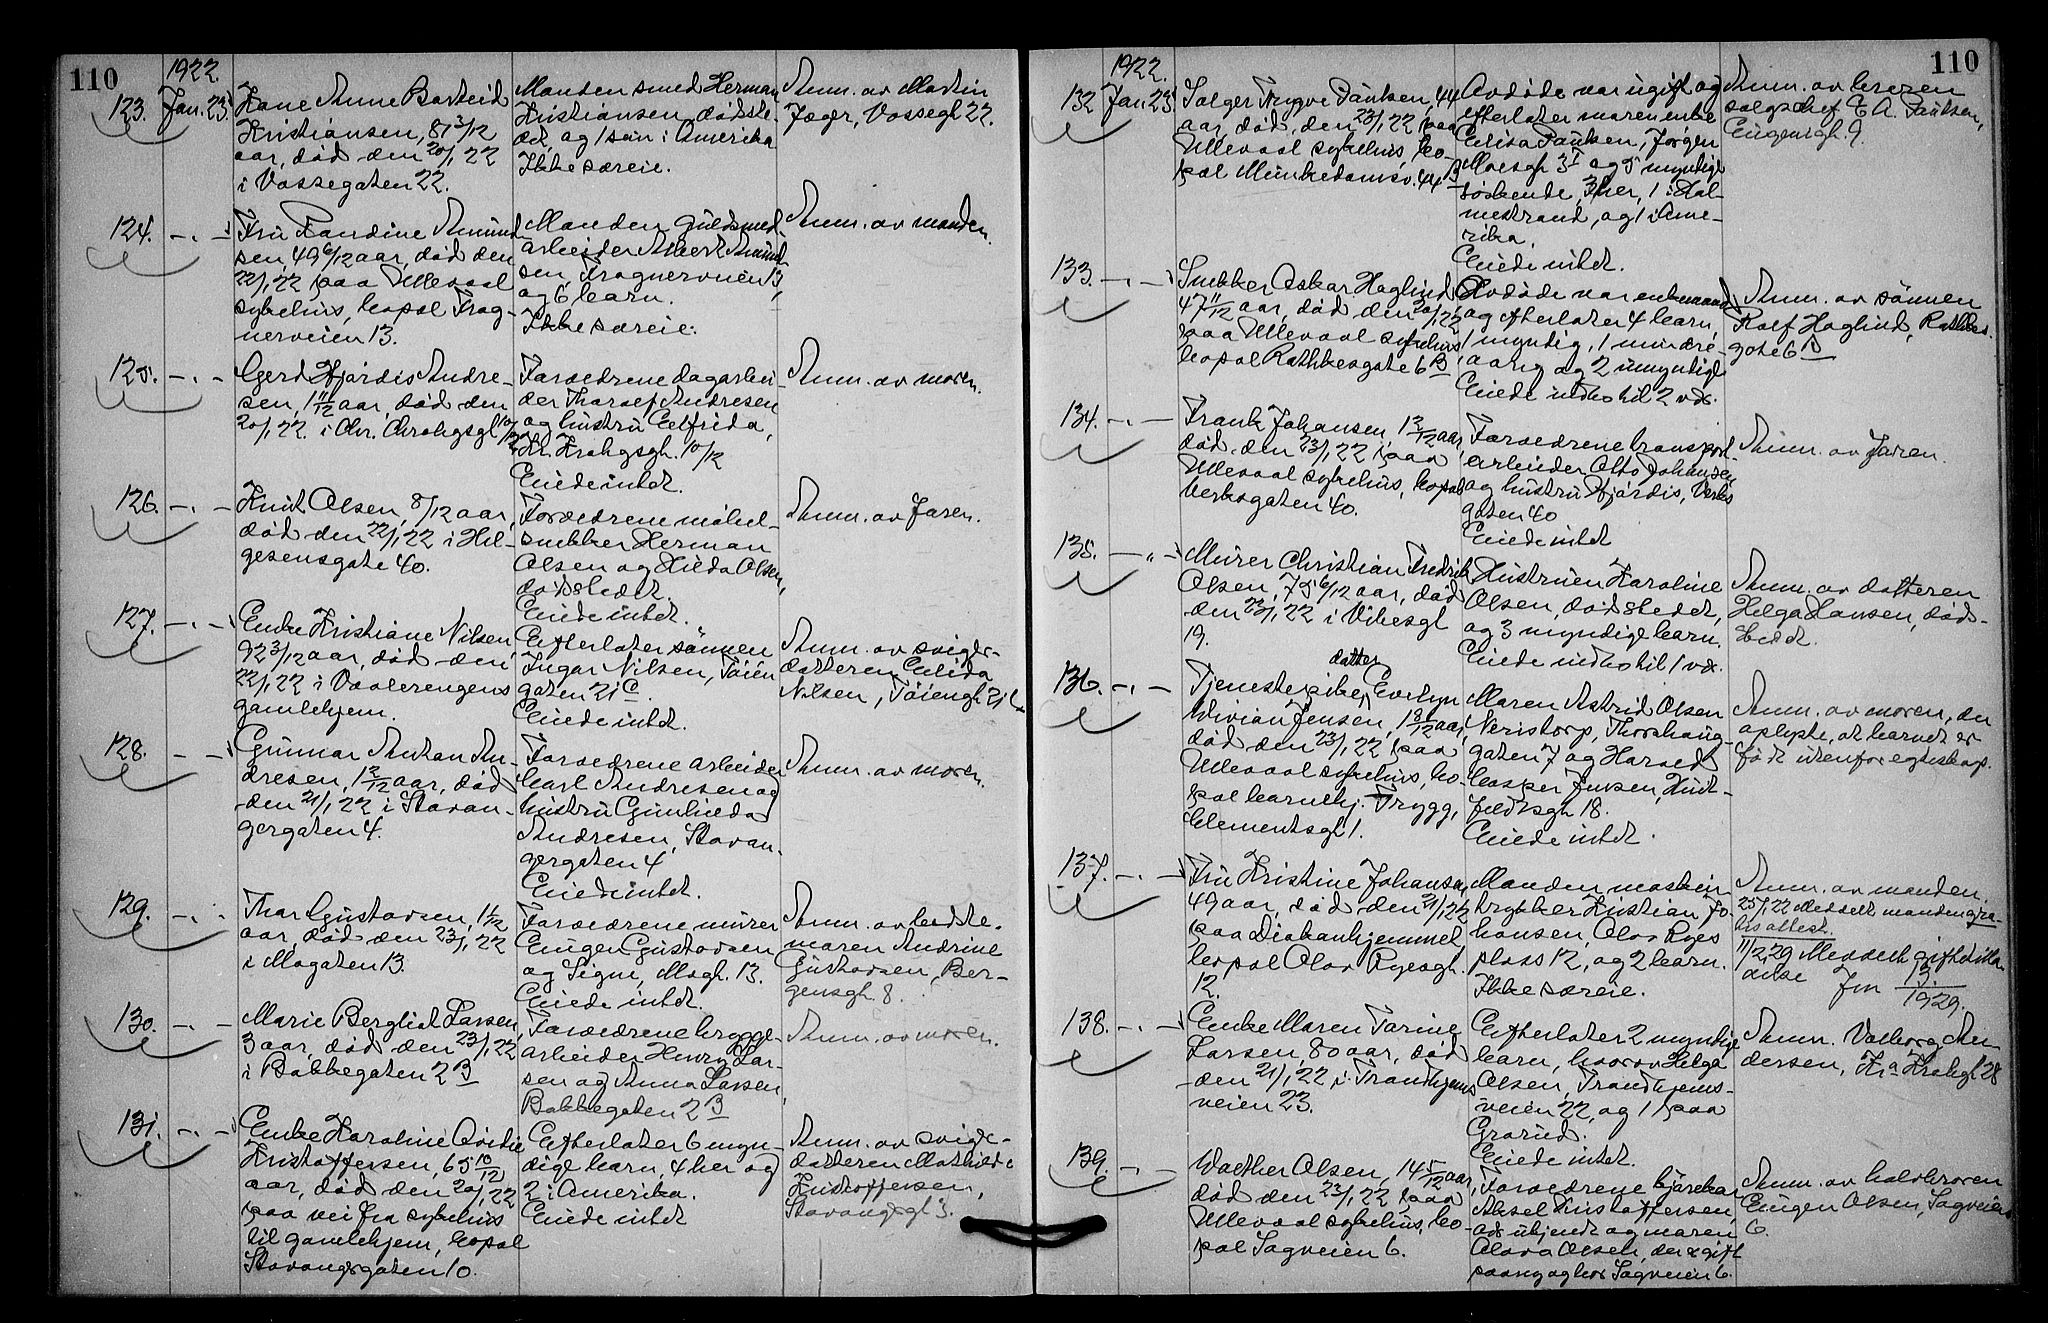 110
1922.
123. Jan. 25
Hane Anne Barteid
Kristiansen, 81 3/12
aar, död den 20/1 22
i Vossegaten 22.
Manden smed Herman
Kristiansen, dödste-
det, og 1 sön i Amerika
Ikke særeie.
Anm. av Martin
Jæger, Vossegt 22.
124. -"-
Fru Randine Amund
sen, 49 6/12 aar, död den
22/1 22 paa Ullevaal
sykehus, bopæl Frog-
nerveien 13.
Manden guldsmed
arbeider Albert Amund
sen, Frognerveien 13,
og 6 barn.
Ikke særeie.
Anm. av manden.
125. -"-
Gerd Hjördis Andre-
sen, 1 11/12 aar, död den
20/1 22 i Chr. Krohgsgt 10/12
Forældrene dagarbei-
der Thoralf Andresen
og hustru Elfrida,
Kr. Krohgsgt. 10/12
Eiede intet.
Anm. av moren.
126. -"-
Knut Olsen, 8/12 aar,
död den 22/1 22 i Hel-
gesensgate 40.
Forældrene möbel-
snekker Herman
Olsen og Hilda Olsen,
dödstedet.
Eiede intet.
Anm. av Faren.
127. -"-
Enke Kristiane Nilsen
92 3/12 aar, död den
22/1 22 i Vaalerengens
gamlehjem.
Efterlater sönnen
Ingar Nilsen, Töien
gaten 21 C
Eiede intet.
Anm. av sviger-
datteren Elida
Nilsen, Töiengt. 21 C
128. -"-
Gunnar Anton An-
dresen, 1 2/12 aar, död
den 21/1 22 i Stavan-
gergaten 4.
Forældrene arbeider
Carl Andresen og
hustru Gunhilda
Andresen, Stavan-
gergaten 4
Eiede intet.
Anm. av moren.
129. -"-
Thor Gustavsen, 1 1/12
aar, död den 23/1 22
i Mogaten 13.
Forældrene murer
Eugen Gustavsen
og Signe, Mogt. 13.
Eiede intet.
Anm. av bedste-
moren Andrine
Gustavsen, Ber-
gensgt. 8.
130. -"-
Marie Bergliot Larsen
3 aar, död den 23/1 22
i Bakkegaten 2 B
Forældrene brygge-
arbeider Henry Lar-
sen og Anna Larsen,
Bakkegaten 2 B
Anm. av moren.
131. -"-
Enke Karoline
Kristoffersen, 65 10/12
aar, död den 20/1 22
paa vei fra sykehus
til gamlehjem, bopæl
Stavangergaten 10.
Efterlater 6 myn-
dige barn, 4 her og
2 i Amerika.
Eiede intet
Anm. av sviger-
datteren Mathilde
Kristoffersen,
Stavangergt 3.
110
1922.
132 Jan 25
Selger Trygve Paulsen, 44
aar, död, den 23/1 22 paa
Ullevaal sykehus, bo-
pæl Munkedamsv. 44 B
Avdöde var ugift og
efterlater moren enke
Elida Paulsen, Jörgen
Moesgt 3 I og 5 myndige
söskende, 3 her, 1 i Hol-
mestrand, og 1 i Ame-
rika.
Eiede intet.
Anm. av broren
salgschef E. A. Paulsen,
Eugenigt. 9.
133. -"-
Snekker Oskar Haglund
47 11/12 aar, död den 20/1 22
paa Ullevaal sykehus,
bopæl Rathkesgate 6 B
Avdöde var enkemand
og efterlater 4 barn,
1 myndig, 1 mindre-
aarig og 2 umyndige
Eiede indbo til 2 vdr.
Anm. av sönnen
Rolf Haglund, Rathkes
gate 6 B
134. -"-
Frank Johansen, 1 2/12 aar,
död den 23/1 22 paa
Ullevaal sykehus, bopæl
Verksgaten 40.
Forældrene transport
arbeider Otto Johansen
og hustru Hjördis, Verks
gaten 40
Eiede intet
Anm. av Faren.
135. -"-
Murer Christian Fredrik
Olsen, 75 6/12 aar, död
den 22/1 22 i Vibesgt
19.
Hustruen Karoline
Olsen, dödstedet,
og 3 myndige barn.
Eiede indbo til 1 vdr.
Anm. av datteren
Helga Hansen, död-
stedet.
136. -"-
datter
Tjenestepike, Evelyn
Wivian Jensen, 1 8/12 aar,
död den 23/1 22 paa
Ullevaal sykehus, bo-
pæl barnehj. Trygg,
Clementsgt 1.
Moren Astrid Olsen
Neristorp, Thorshaug-
gaten 7 og Harald
Casper Jensen, Huit-
feldtsgt 18.
Eiede intet.
Anm. av moren, der
oplyste, at barnet er
född utenfor egteskap.
137. -"-
Fru Kristine Johansen,
49 aar, död den 21/1 22
paa Diakonhjemmet,
bopæl Olav Ryesgt.
12.
Manden maskin-
trykker Kristian Jo-
hansen, Olav Ryes
plass 12, og 2 barn.
Ikke særeie.
Anm. av manden.
25/1 22 Meddelt manden
attest.
11/2 29 Meddelt giftetilla-
delse Jnr 13/1929.
138. -"-
Enke Maren Tarine
Larsen, 80 aar, död
den 21/1 22 i Trondhjems
veien 23.
Efterlater 2 myndige
barn, hvorav Helga
Olsen, Trondhjems-
veien 22, og 1 paa
Grorud.
Eiede intet.
Anm. Valborg An-
dersen, Kr. Krohgt 28
139. -"-
Walther Olsen, 14 5/12 aar,
död den 23/1 22 paa
Ullevaal sykehus, bo-
pæl Sagveien 6.
Forældrene kjörekar
Aksel Kristoffersen,
og moren
Olava Olsen, der er gift
paany og bor Sagveien 6.
Anm. av halvbroren
Eugen Olsen, Sagveien
6.